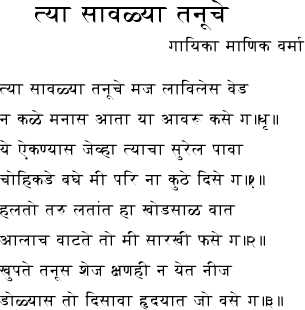 त्या सावळ्या तनूचे
गायिका माणिक वर्मा
त्या सावळ्या तनूचे मज लाविलेस वेड
न कळे मनास आता या आवरू कसे ग॥धृ॥
ये ऐकण्यास जेव्हा त्याचा सुरेल पावा
चोहिकडे बघे मी परि ना कुठे दिसे ग॥१॥
हलतो तरु लतांत हा खोडसाळ वात
आलाच वाटते तो मी सारखी फसे ग॥२॥
खुपते तनूस शेज क्षणही न येत नीज
डोळ्यास तो दिसावा हृदयात जो वसे ग॥३॥